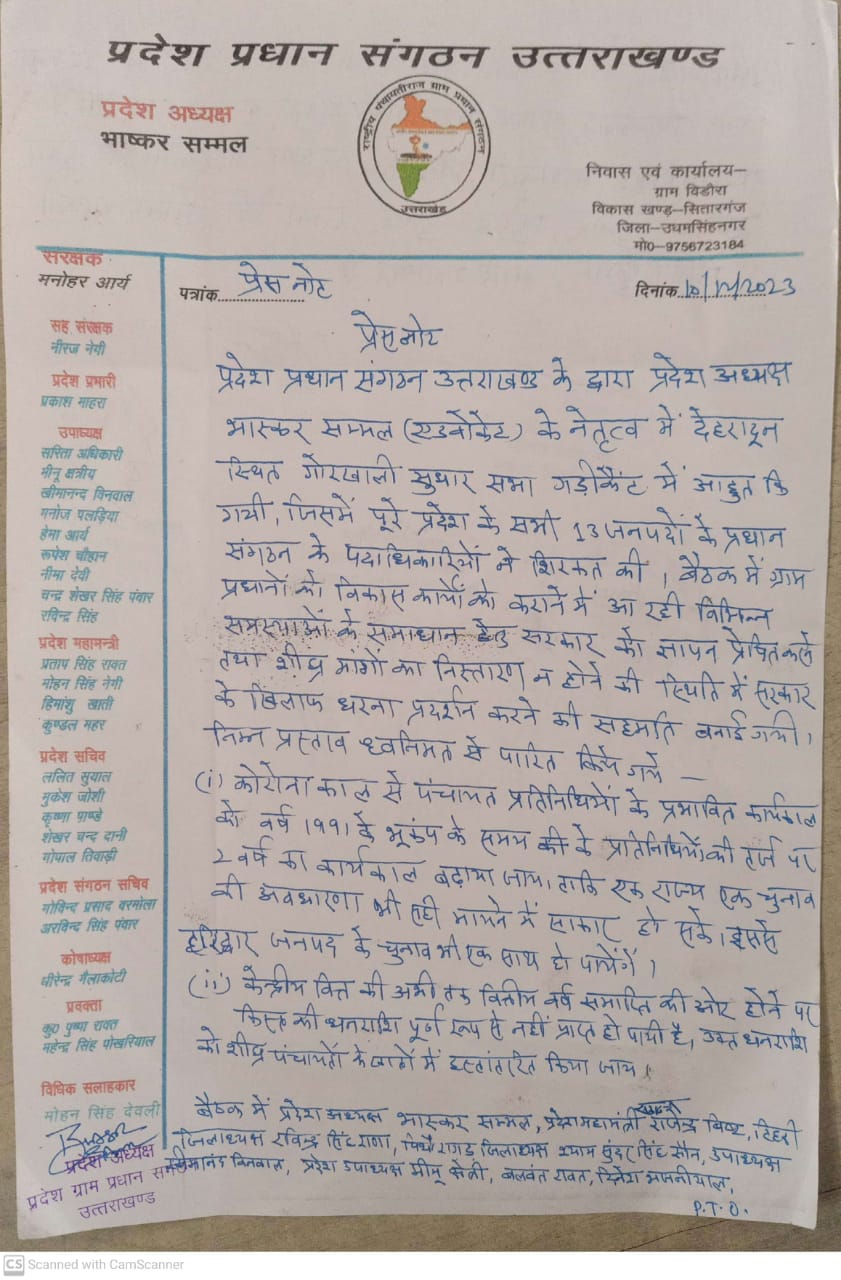 प्रदेश प्रधान संगठन उत्तराखण्ड
प्रदेश अध्यक्ष
भाष्कर सम्मल
राष्ट्रीय पंचायतीराज ग्राम प्रधान संगठन
उत्तराखंड
निवास एवं कार्यालय–
ग्राम विडौरा
विकास खण्ड–सितारगंज
जिला–उधमसिंहनगर
मो0–9756723184
सरक्षक
मनोहर आर्य
सह संरक्षक
नीरज नेगी
प्रदेश प्रभारी
प्रकाश माहरा
उपाध्यक्ष
सरिता अधिकारी
मीनू क्षत्रीय
खीमानन्द विनवाल
मनोज पलड़िया
हेमा आर्य
रूपेश चौहान
नीमा देवी
चन्द्र शेखर सिंह पंवार
रविन्द्र सिंह
प्रदेश महामन्त्री
प्रताप सिंह रावत
मोहन सिंह नेगी
हिमांशु खाती
कुण्डल महर
प्रदेश सचिव
ललित सुयाल
मुकेश जोशी
कृष्णा पाण्डे
शेखर चन्द दानी
गोपाल तिवाड़ी
प्रदेश संगठन सचिव
गोविन्द प्रसाद वरमोला
अरविन्द सिंह पंवार
कोषाध्यक्ष
धीरेन्द्र गैलाकोटी
प्रवक्ता
कु0 पुष्पा रावत
महेन्द्र सिंह पोखरियाल
विधिक सलाहकार
मोहन सिंह देवली
प्रदेश अध्यक्ष
प्रदेश ग्राम प्रधान
उत्तराखण्ड
पत्रांक प्रेस नोट
दिनांक 10/12/2023
प्रेस नोट
प्रदेश प्रधान संगठन उत्तराखण्ड के द्वारा प्रदेश अध्यक्ष
भास्कर सम्मल (एडवोकेट) के नेतृत्व में देहरादून
स्थित गोरखाली सुधार सभा गड़ीकैंट में आहूत कि
गयी, जिसमें पूरे प्रदेश के सभी 13 जनपदों के प्रधान
संगठन के पदाधिकारियों ने शिरकत की। बैठक में ग्राम
प्रधानों को विकास कार्यों को कराने में आ रही विभिन्न
समस्याओं के समाधान हेतु सरकार को ज्ञापन प्रेषित करने
तथा शीघ्र मांगों का निस्तारण न होने की स्थिति में सरकार
के खिलाफ धरना प्रदर्शन करने की सहमति बनाई गयी।
निम्न प्रस्ताव ध्वनिमत से पारित किये गये –
(i) कोरोना काल से पंचायत प्रतिनिधियों के प्रभावित कार्यकाल
को वर्ष 1991 के भूकंप के समय की के प्रतिनिधियों की तर्ज पर
2 वर्ष का कार्यकाल बढ़ाया जाय, ताकि एक राज्य एक चुनाव
की अवधारणा भी सही मायने में साकार हो सके। इससे
हरिद्वार जनपद के चुनाव भी एक साथ हो पायेंगें।
(ii) केन्द्रीय वित्त की अभी तक वित्तीय वर्ष समाप्ति की ओर होने पर
किस्त की धनराशि पूर्ण रूप से नहीं प्राप्त हो पायी है, उक्त धनराशि
को शीघ्र पंचायतों के खातों में हस्तांतरित किया जाय।
बैठक में प्रदेश अध्यक्ष भास्कर सम्मल, प्रदेश महामंत्री राजेन्द्र बिष्ट, टिहरी
जिलाध्यक्ष रविन्द्र सिंह राणा, पिथौरागढ़ जिलाध्यक्ष श्याम सुंदर सिंह सौन, उपाध्यक्ष
खीमानंद विनवाल, प्रदेश उपाध्यक्ष मीनू क्षेत्री, बलवंत रावत,
P.T.O.
CS Scanned with CamScanner